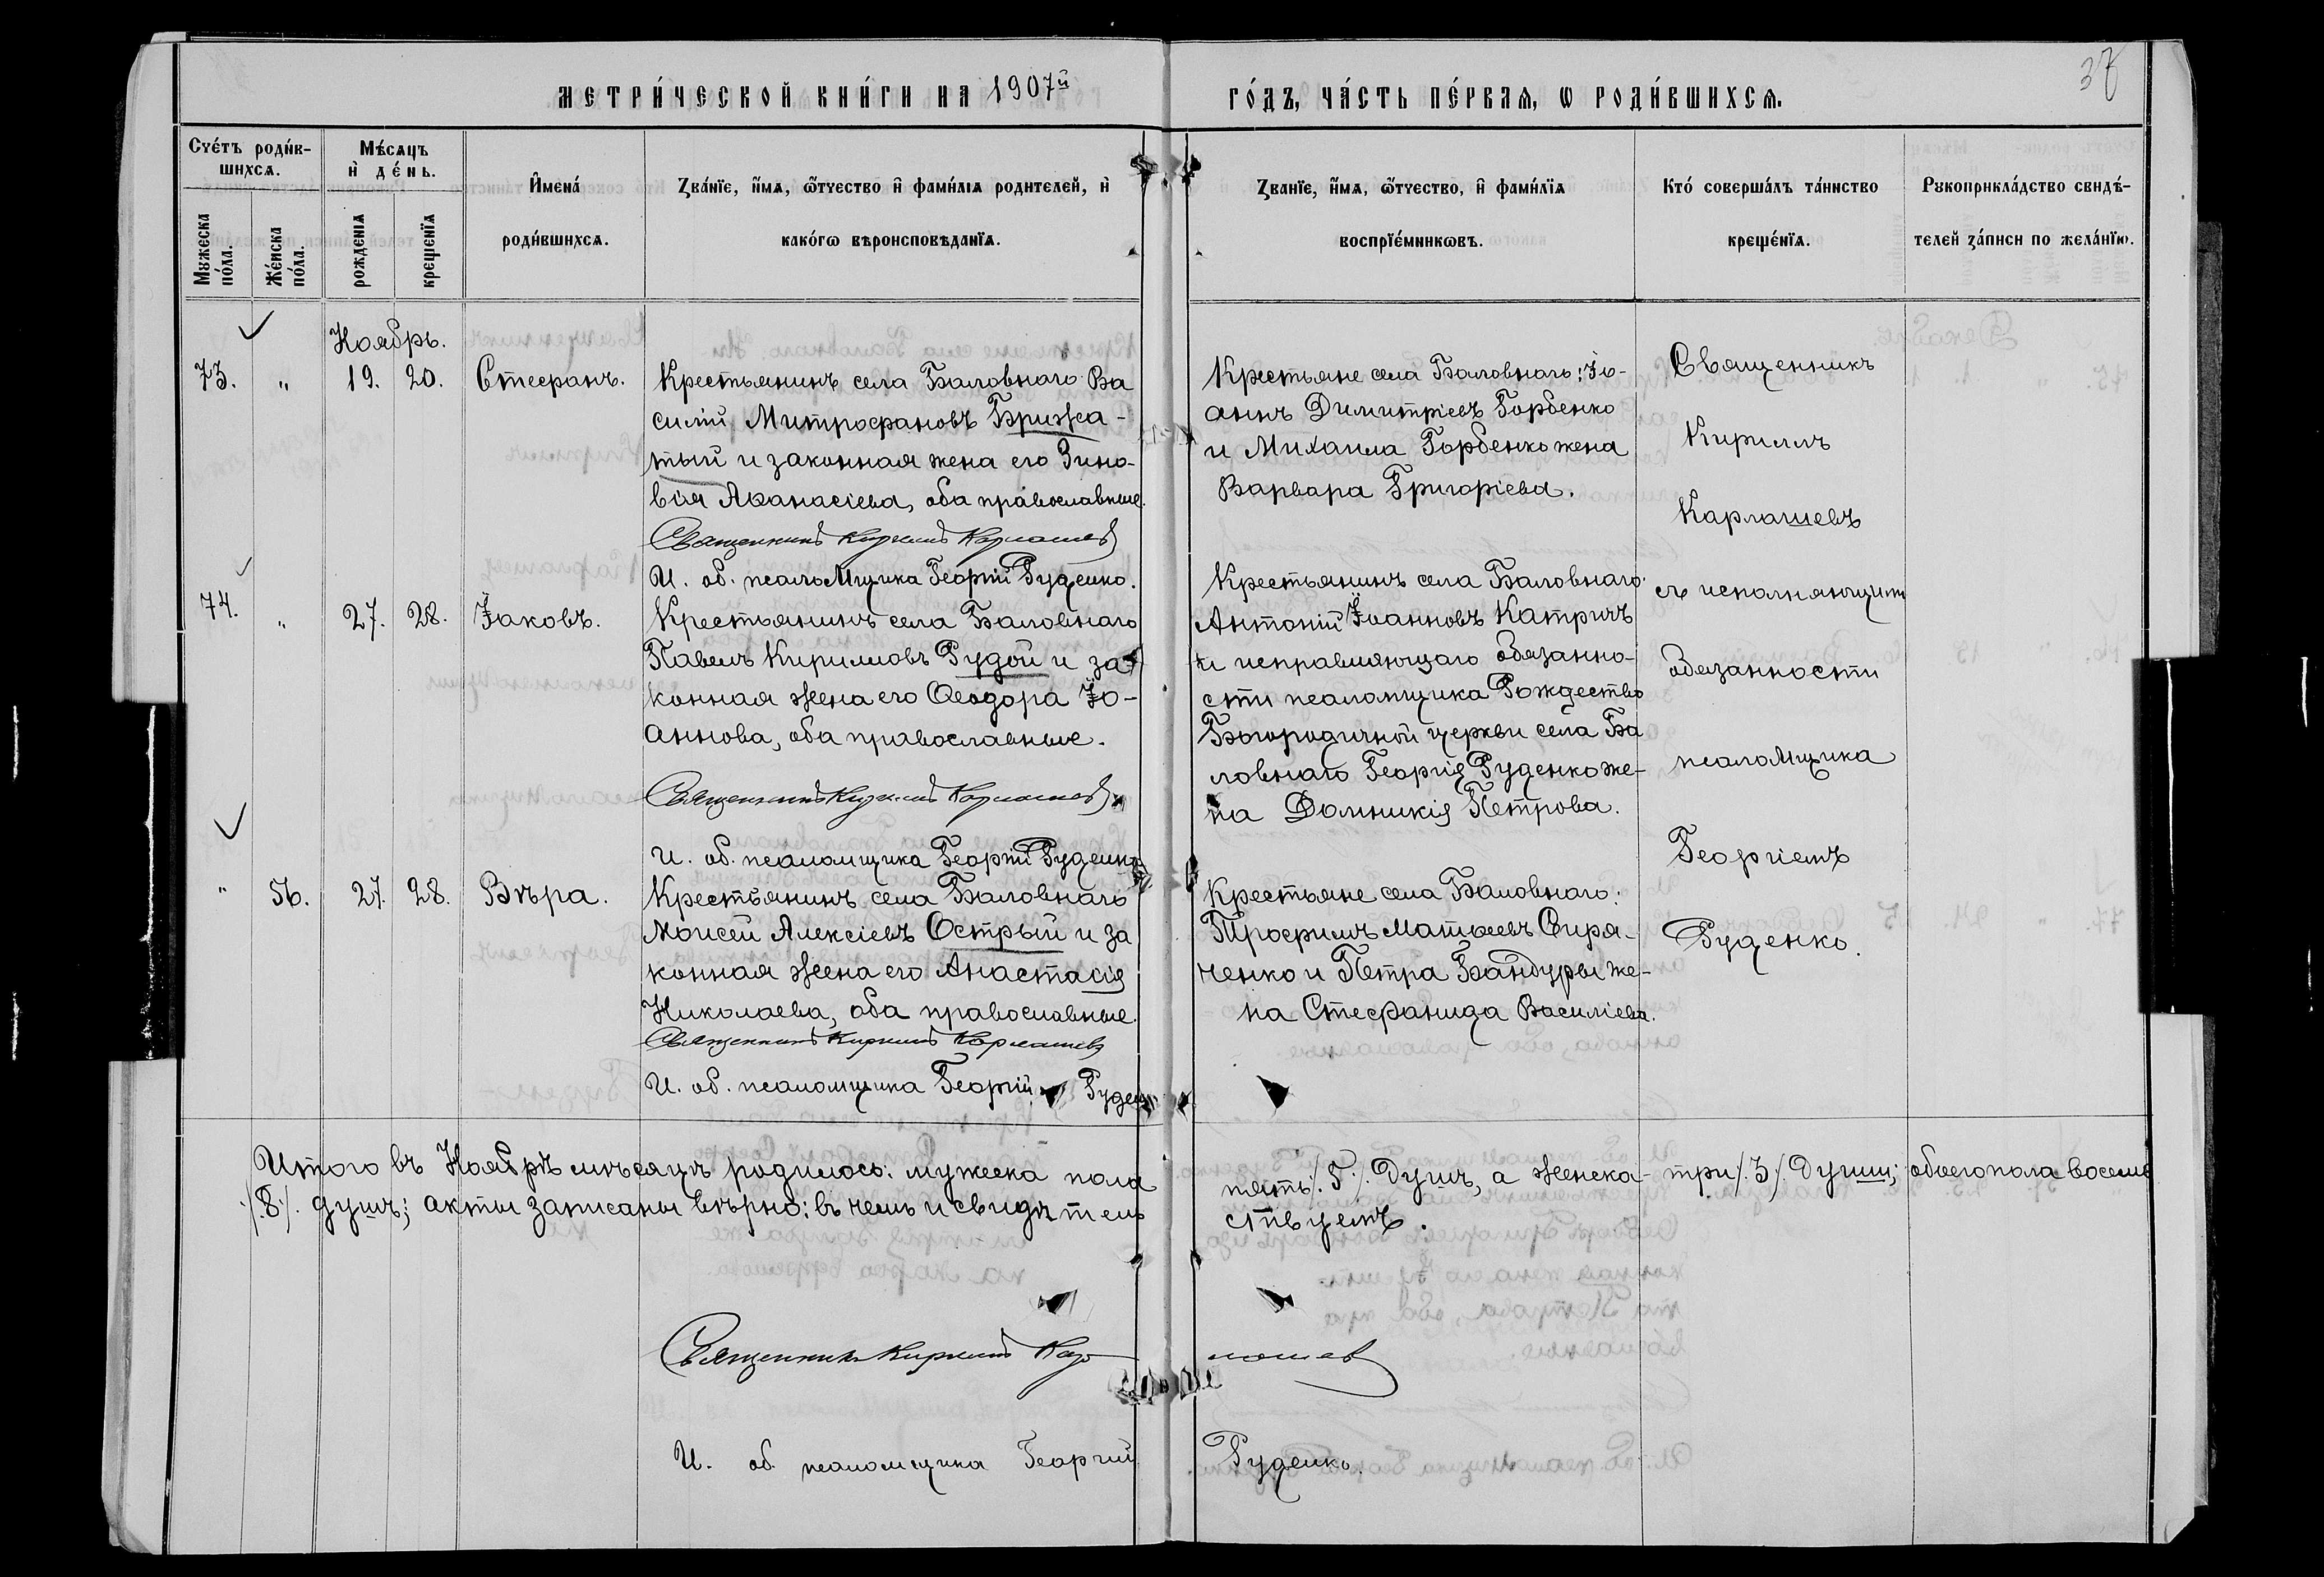 МЕТРИ́ЧЕСКОЙ КНИ́ГИ НА 1907й ГО́ДЪ, ЧА́СТЬ ПЕ́РВАѦ, Ѡ РОДИ́ВШИХСѦ.
Сче́тъ роди́в-
шихсѧ.
Мужеска по́ла.
Же́нска по́ла.
Мѣ́сѧцъ
и҆ де́нь.
рожденїѧ
крещенїѧ
И҆мена́
роди́вшихсѧ.
Ꙁва́нїе, и҆́мѧ, ѻ҆́тчество и҆ фами́лїѧ родителей, и҆
како́гѡ вѣроисповѣ́данїѧ.
Ꙁванїе, и҆́мѧ, ѻ҆́тчество, и҆ фами́лїѧ
воспрїе́мникѡвъ.
Кто́ соверша́лъ та́инство
креще́нїѧ.
Рукоприкла́дство свидѣ́-
телей ꙁа́писи по жела́нїю.
Ноябрь.
73. " 19. 20. Стефанъ.
Крестьянинъ села Баловнаго Ва
силій Митрофановъ Брижа-
тый и законная жена его Зино-
вія Аѳанасіева, оба православные.
Священникъ Кириллъ Карлашев
И. об. псаломщика Георгій Руденко.
Крестьяне села Баловнаго: Іо-
аннъ Димитріевъ Горбенко
и Михаила Горбенко жена
Варвара Григоріева.
Священникъ
Кириллъ
Карлашевъ
съ исполняющимъ
обязанности
псаломщика
Георгіемъ
Руденко.
74. " 27. 28. Іаковъ.
Крестьянинъ села Баловнаго
Павелъ Кирилловъ Рудой и за
конная жена его Ѳеодора Іо-
аннова, оба православные.
Священникъ Кириллъ Карлашев
И. об. псаломщика Георгій Руденко
Крестьянинъ села Баловнаго
Антоній Іоанновъ Катричъ
и исправляющаго обязанно-
сти псаломщика Рождество
Богородичной церкви села Ба
ловнаго Георгія Руденко же-
на Домникія Петрова.
" 56. 27. 28. Вѣра.
Крестьянинъ села Баловнаго
Моисей Алексіевъ Острый и за
конная жена его Анастасія
Николаева, оба православные.
Священникъ Кириллъ Карлашевъ
И. об. псаломщика Георгій Руден
Крестьяне села Баловнаго:
Трофимъ Матѳеевъ Сиря-
ченко и Петра Бандуры же-
на Стефанида Василіева.
Итого въ Ноябрѣ мѣсяцѣ родилось: мужеска пола пять /.5./ душъ, а женска- три /.3./ души; обоего пола восемь
/.8./ душъ; акты записаны вѣрно: въ чемъ и свидѣтель ствуемъ.
Священникъ Кириллъ Кар лашев
И. об. псаломщика Георгій Руденко.